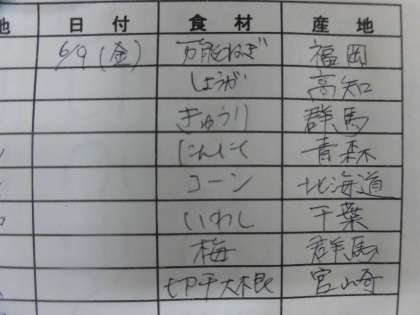 日付 食材 産地
6/9(金) 万能ねぎ 福岡
しょうが 高知
きゅうり 群馬
にんにく 青森
コーン 北海道
いわし 千葉
梅 群馬
切干大根 宮崎